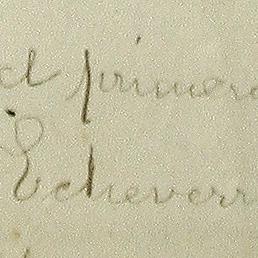 el primero
Echeverr